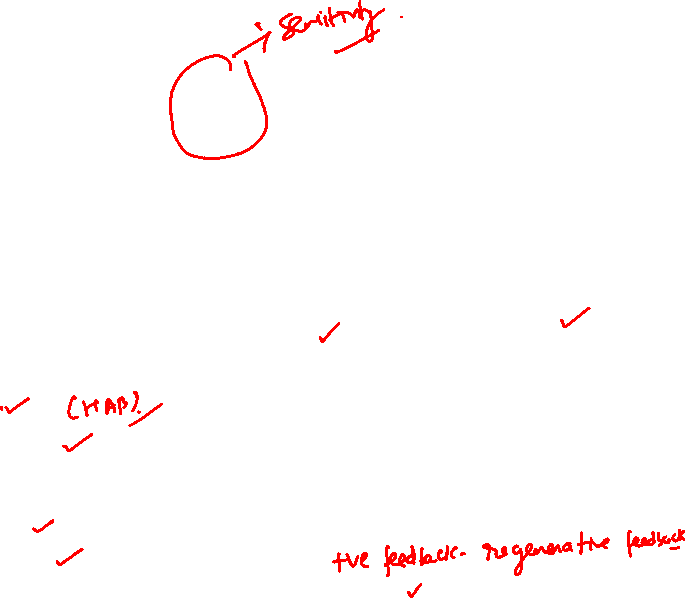 Sensitivity.
(1+AB).
+ve feedback - regenerative feedback